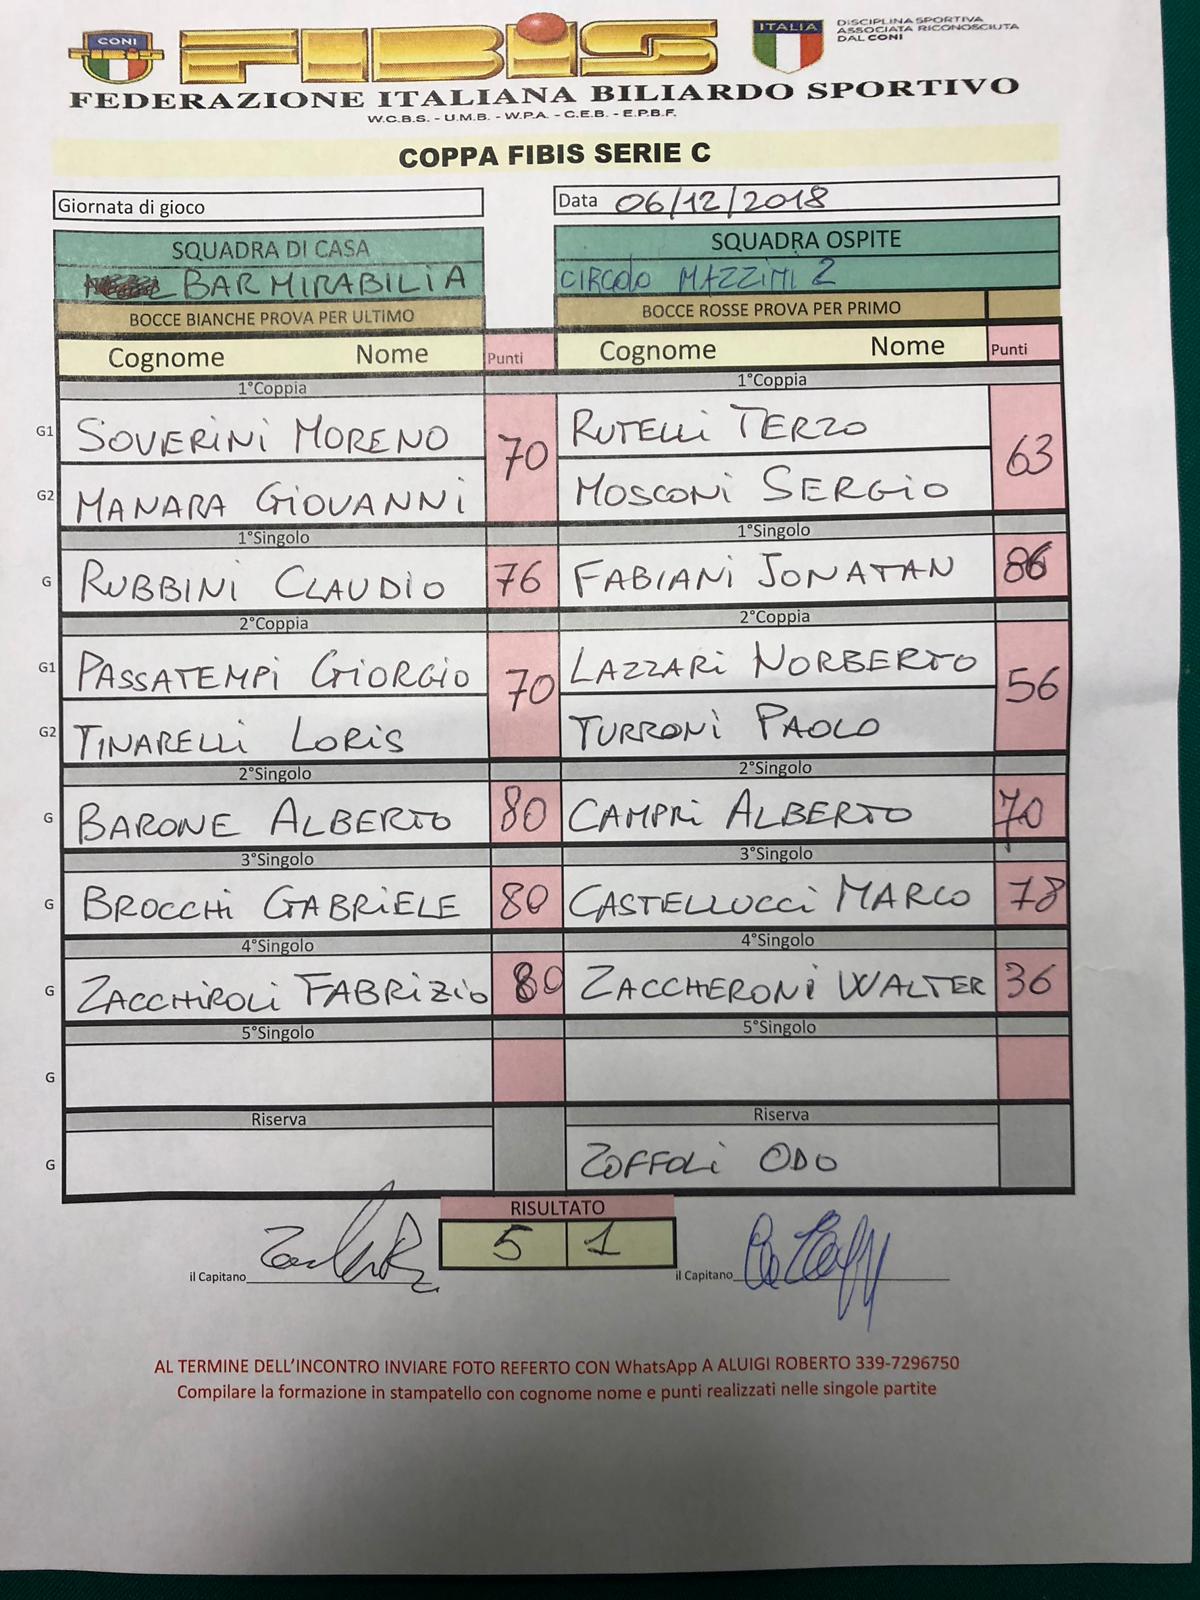 CONI
FIBiS
ITALIA
DISCIPLINA SPORTIVA
ASSOCIATA RICONOSCIUTA
DAL CONI
FEDERAZIONE ITALIANA BILIARDO SPORTIVO
W.C.B.S. - U.M.B. - W.P.A. - C.E.B. - E.P.B.F.
COPPA FIBIS SERIE C
Giornata di gioco
Data 06/12/2018
SQUADRA DI CASA SQUADRA OSPITE
BAR MIRABILIA CIRCOLO MAZZINI 2
BOCCE BIANCHE PROVA PER ULTIMO BOCCE ROSSE PROVA PER PRIMO
Cognome Nome Punti Cognome Nome Punti
1°Coppia 1°Coppia
G1 SOVERINI MORENO 70 RUTELLI TERZO 63
G2 MANARA GIOVANNI MOSCONI SERGIO
1°Singolo 1°Singolo
G RUBBINI CLAUDIO 76 FABIANI JONATAN 86
2°Coppia 2°Coppia
G1 PASSATEMPI GIORGIO 70 LAZZARI NORBERTO 56
G2 TINARELLI LORIS TURRONI PAOLO
2°Singolo 2°Singolo
G BARONE ALBERTO 80 CAMPRI ALBERTO 70
3°Singolo 3°Singolo
G BROCCHI GABRIELE 80 CASTELLUCCI MARCO 78
4°Singolo 4°Singolo
G ZACCHIROLI FABRIZIO 80 ZACCHERONI WALTER 36
5°Singolo 5°Singolo
G
Riserva Riserva
G ZOFFOLI ODO
RISULTATO
5 1
il Capitano il Capitano
AL TERMINE DELL'INCONTRO INVIARE FOTO REFERTO CON WhatsApp A ALUIGI ROBERTO 339-7296750
Compilare la formazione in stampatello con cognome nome e punti realizzati nelle singole partite